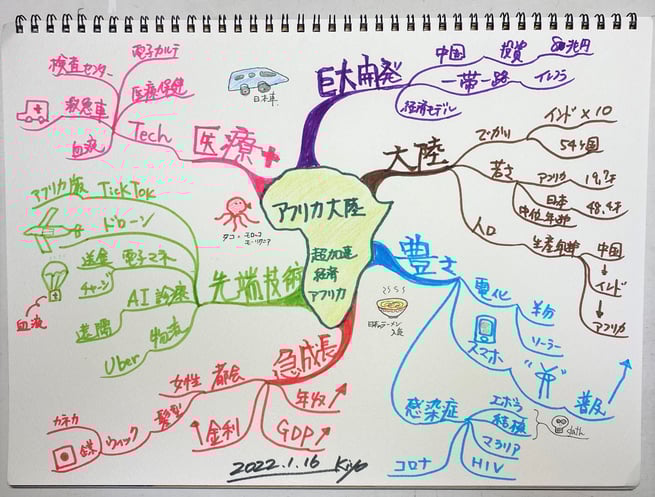 アフリカ大陸
超加速
経済
アフリカ
巨大開発
中国
投資
80兆円
一帯一路
インフラ
経済モデル
日本車
大陸
でかい
インド×10
54ヶ国
若さ
アフリカ
19.7才
日本
中位年齢
48.4才
人口
生産年齢
中国
インド
アフリカ
豊さ
電化
半分
ソーラー
スマホ
普及
感染症
エボラ
結核
マラリア
HIV
コロナ
death
日本のラーメン
急成長
年収
GDP
金利
都会
女性
髪型
ウィッグ
カネカ
先端技術
アフリカ版 TickTok
ドローン
送金
電子マネ
チャーン
AI診療
遠隔
物流
Uber
血液
医療
Tech
電子カルテ
医療保健
検査センター
救急車
血液
タコ・モロッコ
モーリタニア
2022.1.16 Kiyo